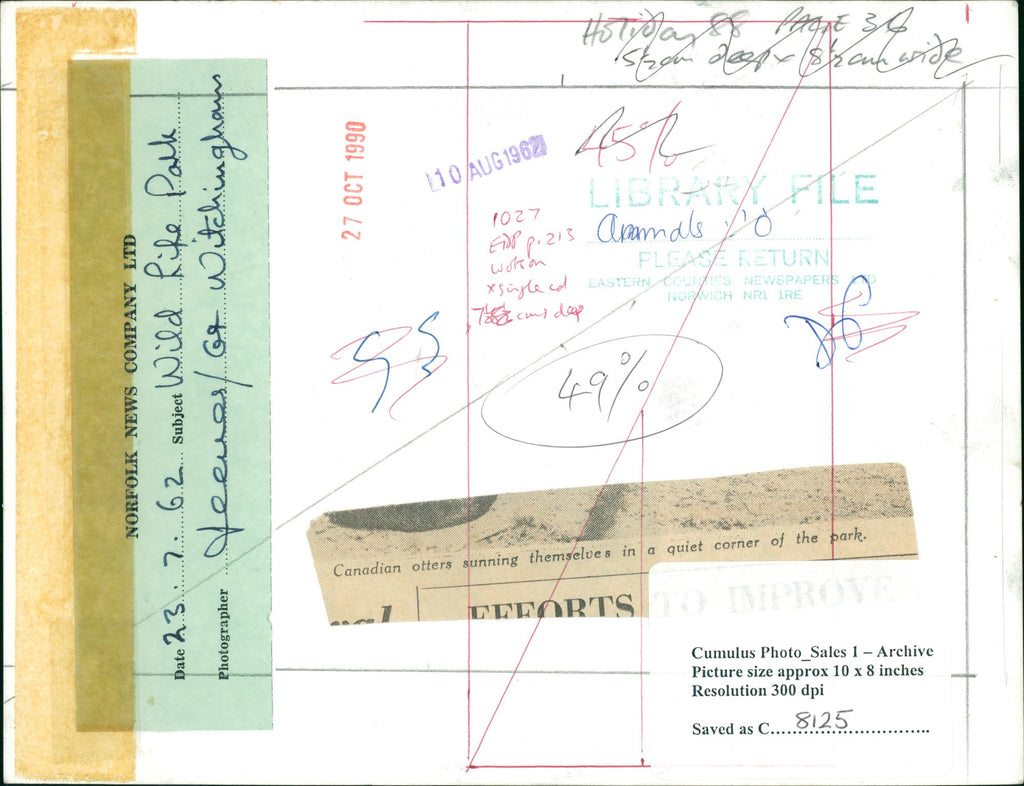 Holiday 88 PAGE 36
5 cm deep x 8 cm wide
NORFOLK NEWS COMPANY LTD
Date 23.7.62 Subject Wild Life Park
Photographer Witchingham
27 OCT 1990
10 AUG 1962
45%
LIBRARY FILE
Animals 'O'
PLEASE RETURN
EASTERN COUNTIES NEWSPAPERS LTD
NORWICH NR1 1RE
1027
EDP p.213
x single col
cms deep
49%
Canadian otters sunning themselves in a quiet corner of the park.
EFFORTS TO IMPROVE
Cumulus Photo_Sales 1 – Archive
Picture size approx 10 x 8 inches
Resolution 300 dpi
Saved as C 8125